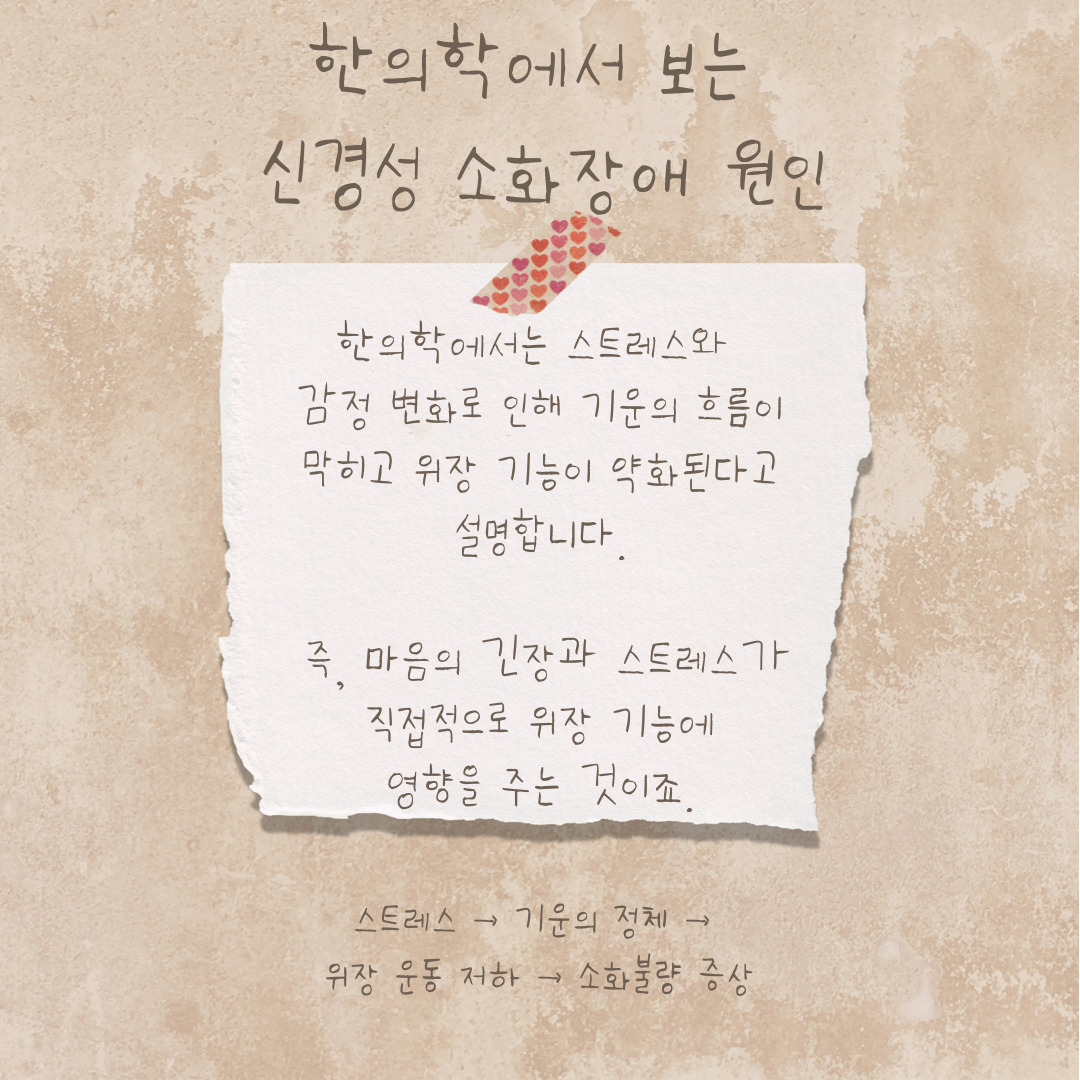 한의학에서 보는
신경성 소화장애 원인
한의학에서는 스트레스와
감정 변화로 인해 기운의 흐름이
막히고 위장 기능이 약화된다고
설명합니다.
즉, 마음의 긴장과 스트레스가
직접적으로 위장 기능에
영향을 주는 것이죠.
스트레스 → 기운의 정체 →
위장 운동 저하 → 소화불량 증상